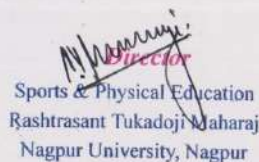 Director
Sports & Physical Education
Rashtrasant Tukadoji Maharaj
Nagpur University, Nagpur